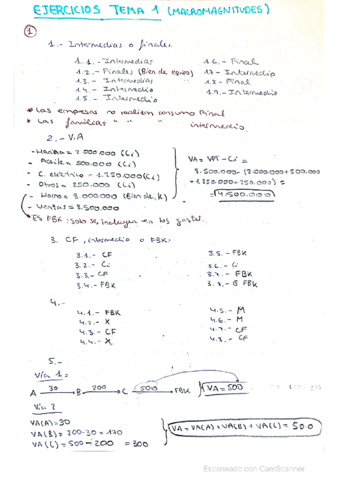 EJERCICIOS TEMA 1 (MACROMAGNITUDES)
1
1.- Intermedias o finales
1.1.- Intermedias
1.2.- Finales (Bien de equipo)
1.3.- Intermedias
1.4.- Intermedio
1.5.- Intermedio
1.6.- Final
1.7- Intermedio
1.8- Final
1.9.- Intermedio
* Las empresas no realizan consumo final
* Las familias " " " intermedio.
2.- V.A
- Harina = 2.000.000 (Ci)
- Aceite = 500.000 (Ci)
- C. eléctrico = 1.250.000 (Ci)
- Otros = 250.000 (Ci)
- Horno = 3.000.000 (Bien de K)
- Ventas = 8.500.000
VA = VPT - Ci =
8.500.000 - (2.000.000 + 500.000
+ 1.250.000 + 250.000) =
= 4.500.000
Es FBK: solo se incluyen los gastos.
3. CF, intermedio o FBK:
3.1.- CF
3.2.- Ci
3.3.- CF
3.4.- FBK
3.5.- FBK
3.6.- Ci
3.7.- FBK
3.8.- FBK
4.-
4.1.- FBK
4.2.- X
4.3.- CF
4.4.- X
4.5.- M
4.6.- M
4.7.- CF
4.8.- CF
5.-
Vía 1:
A 30 B 200 C 500 FBK VA = 500
Vía 2
VA(A) = 30
VA(B) = 200 - 30 = 170
VA(C) = 500 - 200 = 300
VA = VA(A) + VA(B) + VA(C) = 500
Escaneado con CamScanner